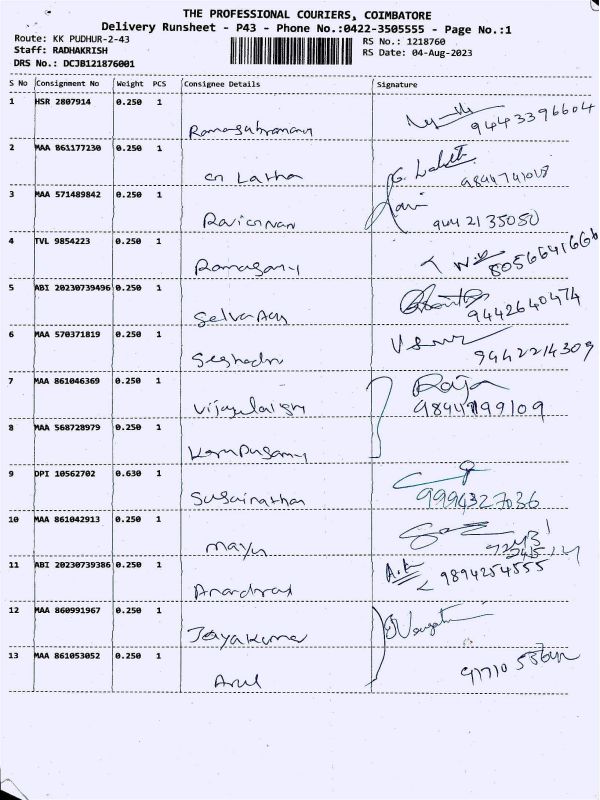 THE PROFESSIONAL COURIERS, COIMBATORE
Delivery Runsheet - P43 - Phone No.:0422-3505555 - Page No.:1
Route: KK PUDHUR-2-43
RS No.: 1218760
Staff: RADHAKRISH
RS Date: 04-Aug-2023
DRS No.: DCJB121876001
S No Consignment No Weight PCS Consignee Details Signature
1 HSR 2807914 0.250 1
9444339 6604
2 MAA 861177230 0.250 1
cn Latha
3 MAA 571489842 0.250 1
Ravi
Ravicnnan 9442135050
4 TVL 9854223 0.250 1
Ramasamy 8056641666
5 ABI 20230739496 0.250 1
9442640474
6 MAA 570371819 0.250 1
Seshadri 9442214309
7 MAA 861046369 0.250 1 Raja
8 MAA 568728979 0.250 1
Karupusamy
9 DPI 10562702 0.630 1
Susainathan 9994327036
10 MAA 861042913 0.250 1
11 ABI 20230739386 0.250 1 A.K 9894254555
Anandraj
12 MAA 860991967 0.250 1
Jayakumar
13 MAA 861053052 0.250 1
Arul